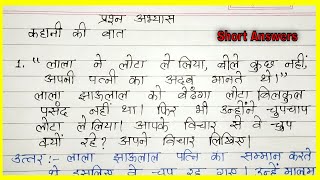 प्रश्न अभ्यास
कहानी की बात
Short Answers
1. "लाला ने लोटा ले लिया, बोले कुछ नहीं,
अपनी पत्नी का अदब मानते थे।"
लाला झाऊलाल को बेढंगा लोटा बिलकुल
पसंद नहीं था। फिर भी उन्होंने चुपचाप
लोटा ले लिया। आपके विचार से वे चुप
क्यों रहे? अपने विचार लिखिए।
उत्तर:- लाला झाऊलाल पत्नि का सम्मान करते
थे इसलिए वे चुप रह गए। उन्हें मालूम